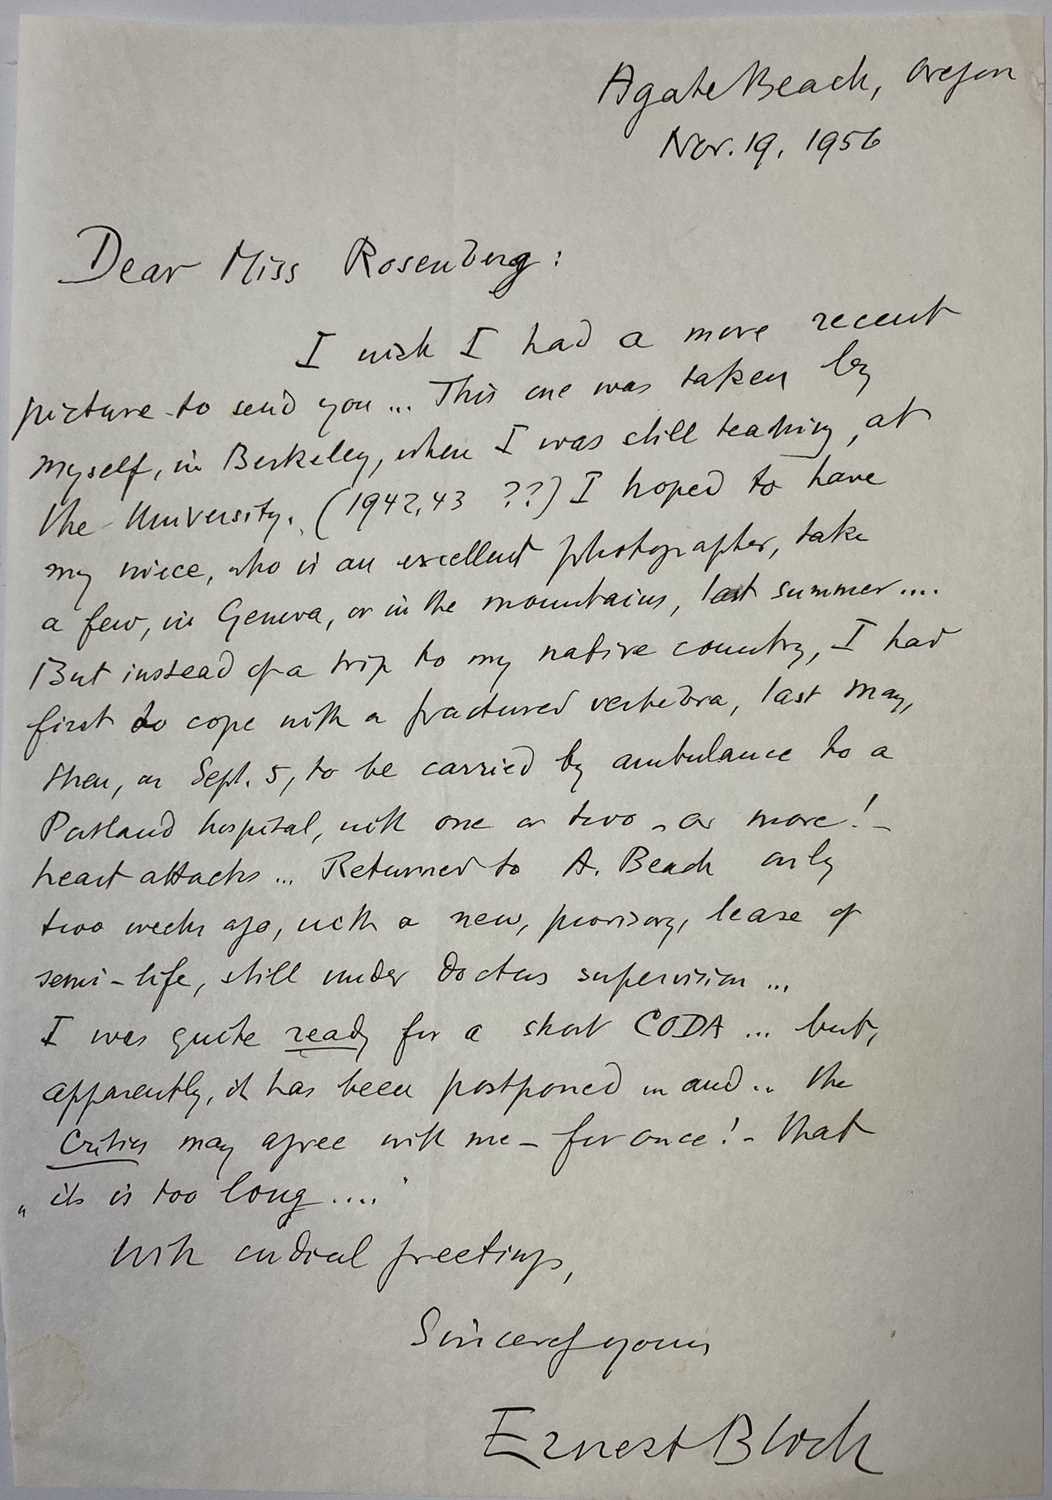 Agate Beach, Oregon
Nov. 19, 1956
Dear Miss Rosenberg:
I wish I had a more recent
picture to send you... This one was taken by
myself, in Berkeley, when I was still teaching, at
the University. (1942, 43 ??) I hoped to have
my niece, who is an excellent photographer, take
a few, in Geneva, or in the mountains, last summer....
But instead of a trip to my native country, I had
first to cope with a fractured vertebra, last May,
then, on Sept. 5, to be carried by ambulance to a
Portland hospital, with one or two - or more! -
heart attacks... Returned to A. Beach only
two weeks ago, with a new, provisory, lease of
semi-life, still under doctors supervision...
I was quite ready for a short CODA ... but,
apparently, it has been postponed ... and .. the
Critics may agree with me - for once! - that
„ it is too long....“
With cordial greetings,
Sincerely yours
Ernest Bloch